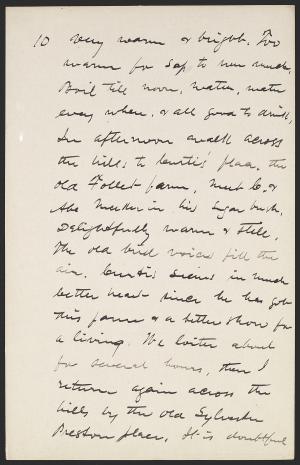 10 Very warm & bright. Too
warm for sap to run much.
Boil till noon, water, water
every where, & all good to drink.
In afternoon walk across
the hills to Curtis' place, the
old Follet farm, meet C. &
Abe Meeker in his sugar bush.
Delightfully warm & still,
The old bird voices fill the
air. Curtis seems in much
better heart since he has got
this farm & a better show for
a living. We loiter about
for several hours, then I
return again across the
hills by the old Sylvester
Preston place. It is doubtful